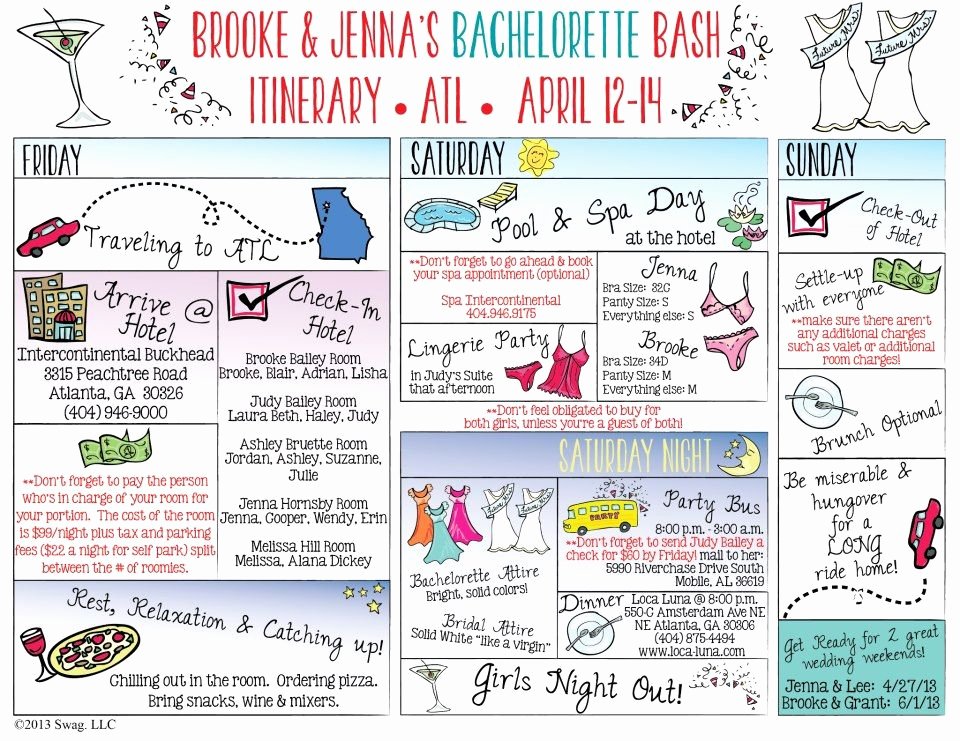 BROOKE & JENNA'S BACHELORETTE BASH
ITINERARY • ATL • APRIL 12-14
Future Mrs.
Future Mrs.
FRIDAY
Traveling to ATL
Arrive @
Hotel
Intercontinental Buckhead
3315 Peachtree Road
Atlanta, GA 30326
(404) 946-9000
Check-In
Hotel
Brooke Bailey Room
Brooke, Blair, Adrian, Lisha
Judy Bailey Room
Laura Beth, Haley, Judy
Ashley Bruette Room
Jordan, Ashley, Suzanne,
Julie
Jenna Hornsby Room
Jenna, Cooper, Wendy, Erin
Melissa Hill Room
Melissa, Alana Dickey
**Don't forget to pay the person
who's in charge of your room for
your portion. The cost of the room
is $99/night plus tax and parking
fees ($22 a night for self park) split
between the # of roomies.
Rest, Relaxation & Catching up!
Chilling out in the room. Ordering pizza.
Bring snacks, wine & mixers.
SATURDAY
Pool & Spa Day
at the hotel
**Don't forget to go ahead & book
your spa appointment (optional)
Spa Intercontinental
404.946.9175
Lingerie Party
in Judy's Suite
that afternoon
Jenna
Bra Size: 32C
Panty Size: S
Everything else: S
Brooke
Bra Size: 34D
Panty Size: M
Everything else: M
**Don't feel obligated to buy for
both girls, unless you're a guest of both!
SATURDAY NIGHT
Future Mrs.
Future Mrs.
Bachelorette Attire
Bright, solid colors!
Bridal Attire
Solid White "like a virgin"
PARTY
Party Bus
8:00 p.m. - 3:00 a.m.
**Don't forget to send Judy Bailey a
check for $60 by Friday! mail to her:
5990 Riverchase Drive South
Mobile, AL 36619
Dinner
Loca Luna @ 8:00 p.m.
550-C Amsterdam Ave NE
NE Atlanta, GA 30306
(404) 875-4494
www.loca-luna.com
Girls Night Out!
SUNDAY
Check-Out
of Hotel
Settle-up
with everyone
**make sure there aren't
any additional charges
such as valet or additional
room charges!
Brunch Optional
Be miserable &
hungover
for a
LONG
ride home!
Get Ready for 2 great
wedding weekends!
Jenna & Lee: 4/27/13
Brooke & Grant: 6/1/13
©2013 Swag, LLC